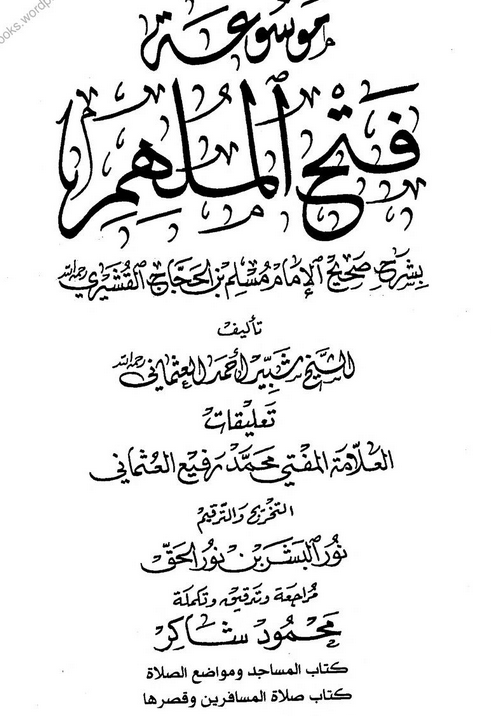 ooks.wordp
موسوعة
فتح الملهم
بشرح صحيح الإمام مسلم بن الحجاج القشيري رحمه الله
تأليف
الشيخ شبير أحمد العثماني رحمه الله
تعليقات
العلامة المفتي محمد رفيع العثماني
التخريج والترقيم
نور البشر بن نور الحق
مراجعة وتدقيق وتكملة
محمود شاكر
كتاب المساجد ومواضع الصلاة
كتاب صلاة المسافرين وقصرها